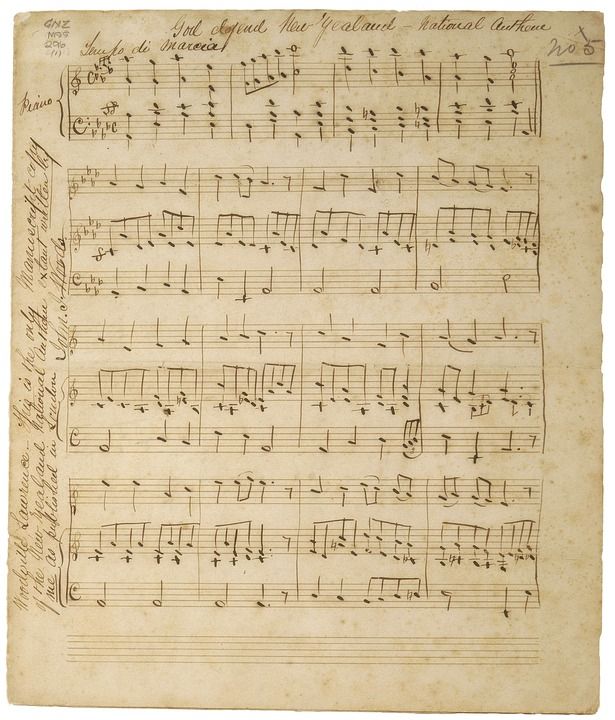 GNZ
MSS
206
(1)
God defend New Zealand – National Anthem
No 5
Tempo di Marcia
Piano
Woodville Lawrence. This is the only Manuscript copy
of the New Zealand National Anthem & last written by
me as published in London John J. Woods